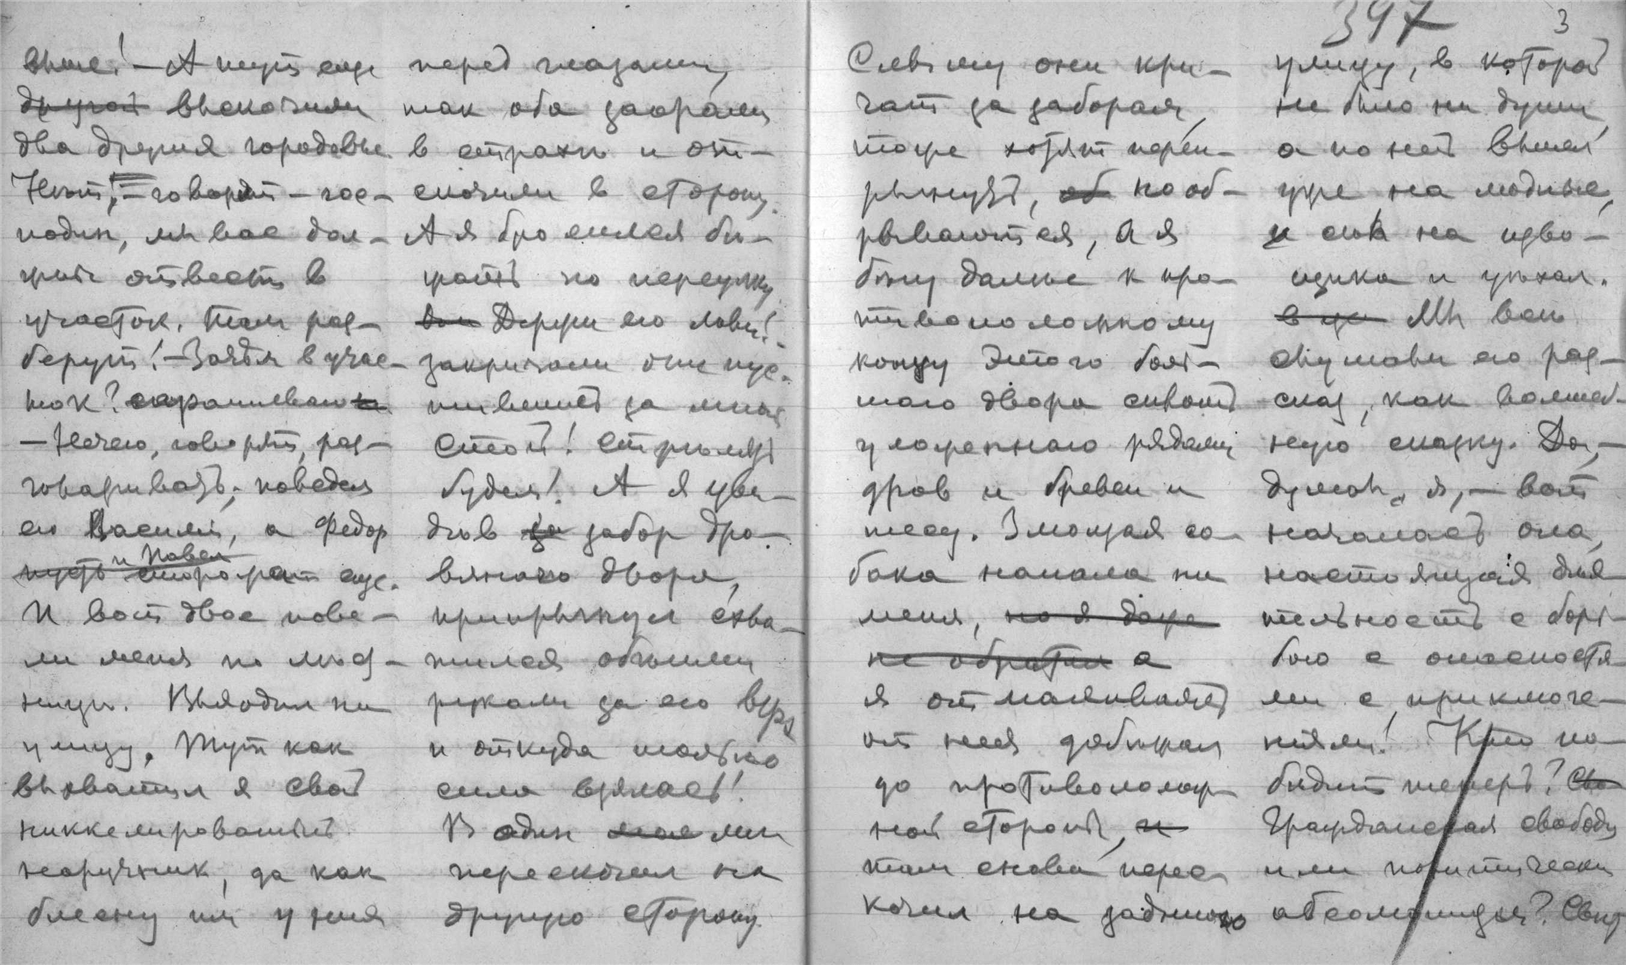 выше! – А тутъ еще
другой выскочили
два другія городовые.
Нѣтъ, – говорятъ – гос-
подинъ, мы вас дол-
жны отвести в
участок. Там раз-
берут! – Зачѣм в учас-
ток? спрашиваю
– Нечего, говорятъ, раз-
говаривать; поведем
его Василій, а Федор
и Павел
пусть сторожат еще.
И вот двое пове-
ли меня по лѣст-
ницѣ. Выходим на
улицу. Тут как
выхватил я свой
никкелированный
наручник, да как
блесну им у них
перед глазами,
так оба заорали
в страхѣ и от-
скочили в сторону.
А я бросился бѣ-
жать по переулку.
Держи его, лови!
закричали они пус-
тившись за мной
Стой! Стрѣлять
будем! А я уви-
дѣв за забор дро-
вяного двора,
припрыгнул схва-
тился обѣими
руками за его верх
и откуда только
сила взялась!
В один миг
перескочил на
другую сторону.
Слышу они кри-
чат за забором,
тоже хотят переп-
рыгнуть, об но об-
рываются, а я
бѣгу дальше к про-
тивоположному
концу этого боль-
шого двора сплошь
уложеннаго рядами
дров и бревен и
тесу. Злющая со-
бака напала на
меня, но я даже
не обратил а
я отмахиваясь
от нея добѣжал
до противополож-
ной стороны, и
там снова перес-
кочил на заднюю
397
3
улицу, в которой
не было ни души,
а по ней вышел
уже на людные,
и сѣл на изво-
щика и уѣхал.
Мы всѣ
слушали его раз-
сказ, как волшеб-
ную сказку. Да, –
думал я, – вот
началась она,
настоящая дѣя
тельность с борь-
бою с опасностя
ми с приключе-
ніями! Кто по-
бѣдит теперь?
Гражданская свобода
или политическій
абсолютизм? Свѣт